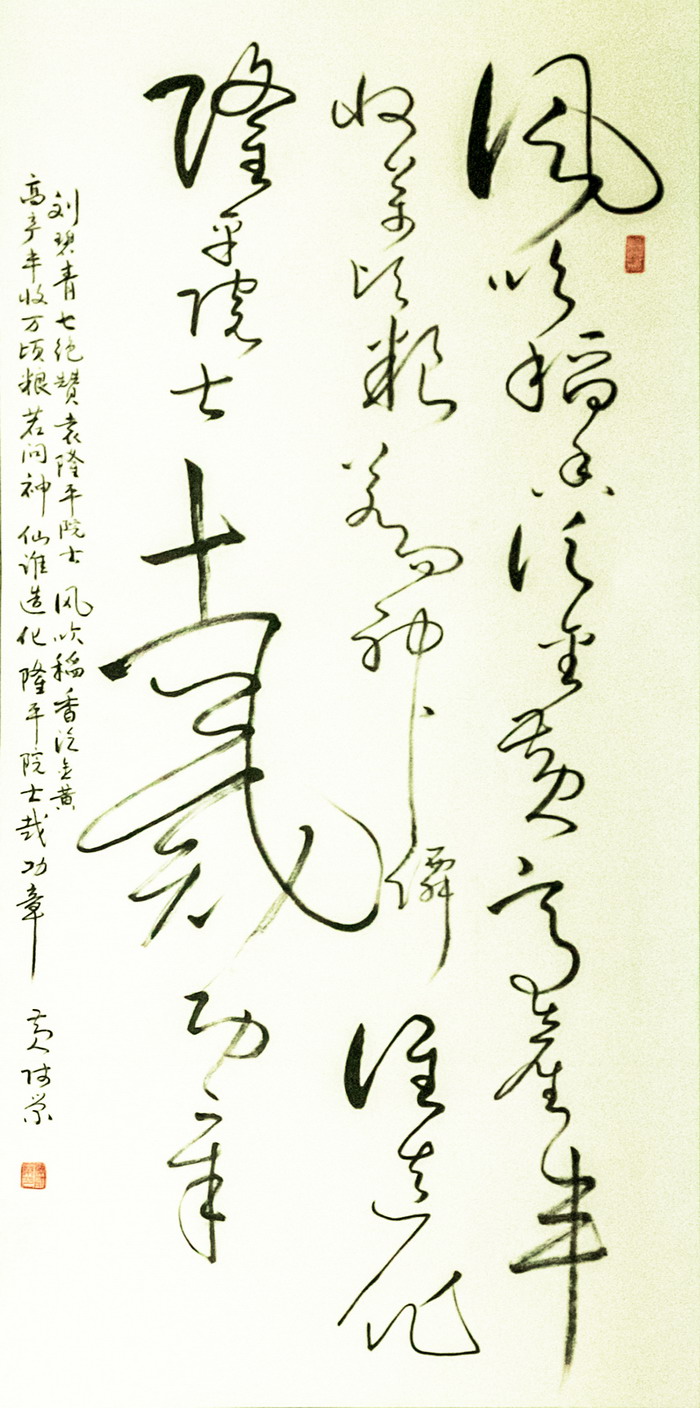 風吹稻香泛金黄高產丰
收萬顷粮若问神僊谁造化
隆平院士功章
刘碧青七绝赞袁隆平院士 风吹稻香泛金黄
高产丰收万顷粮若问神仙谁造化隆平院士哉功章 黄